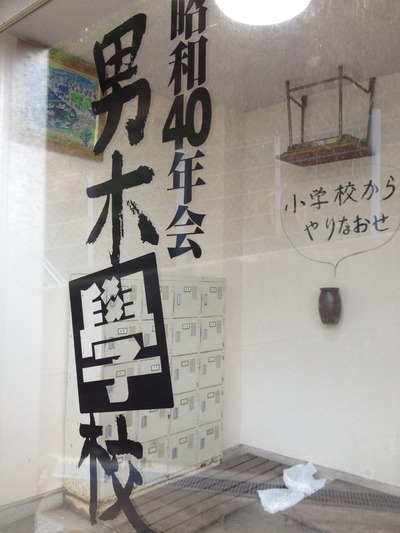 昭和40年会
男木學校
小学校から
やりなおせ